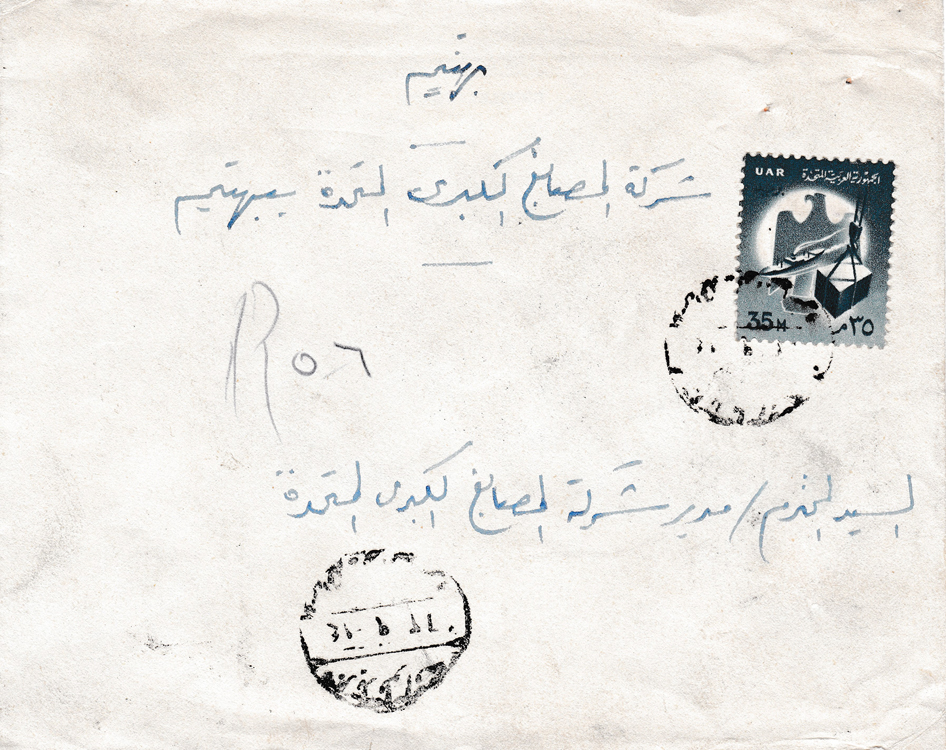 بهتيم
شركة المصابغ الكبرى المتحدة ببهتيم
UAR الجمهورية العربية المتحدة
35M ٣٥م
R ٥٦
السيد المحترم / مدير شركة المصابغ الكبرى المتحدة